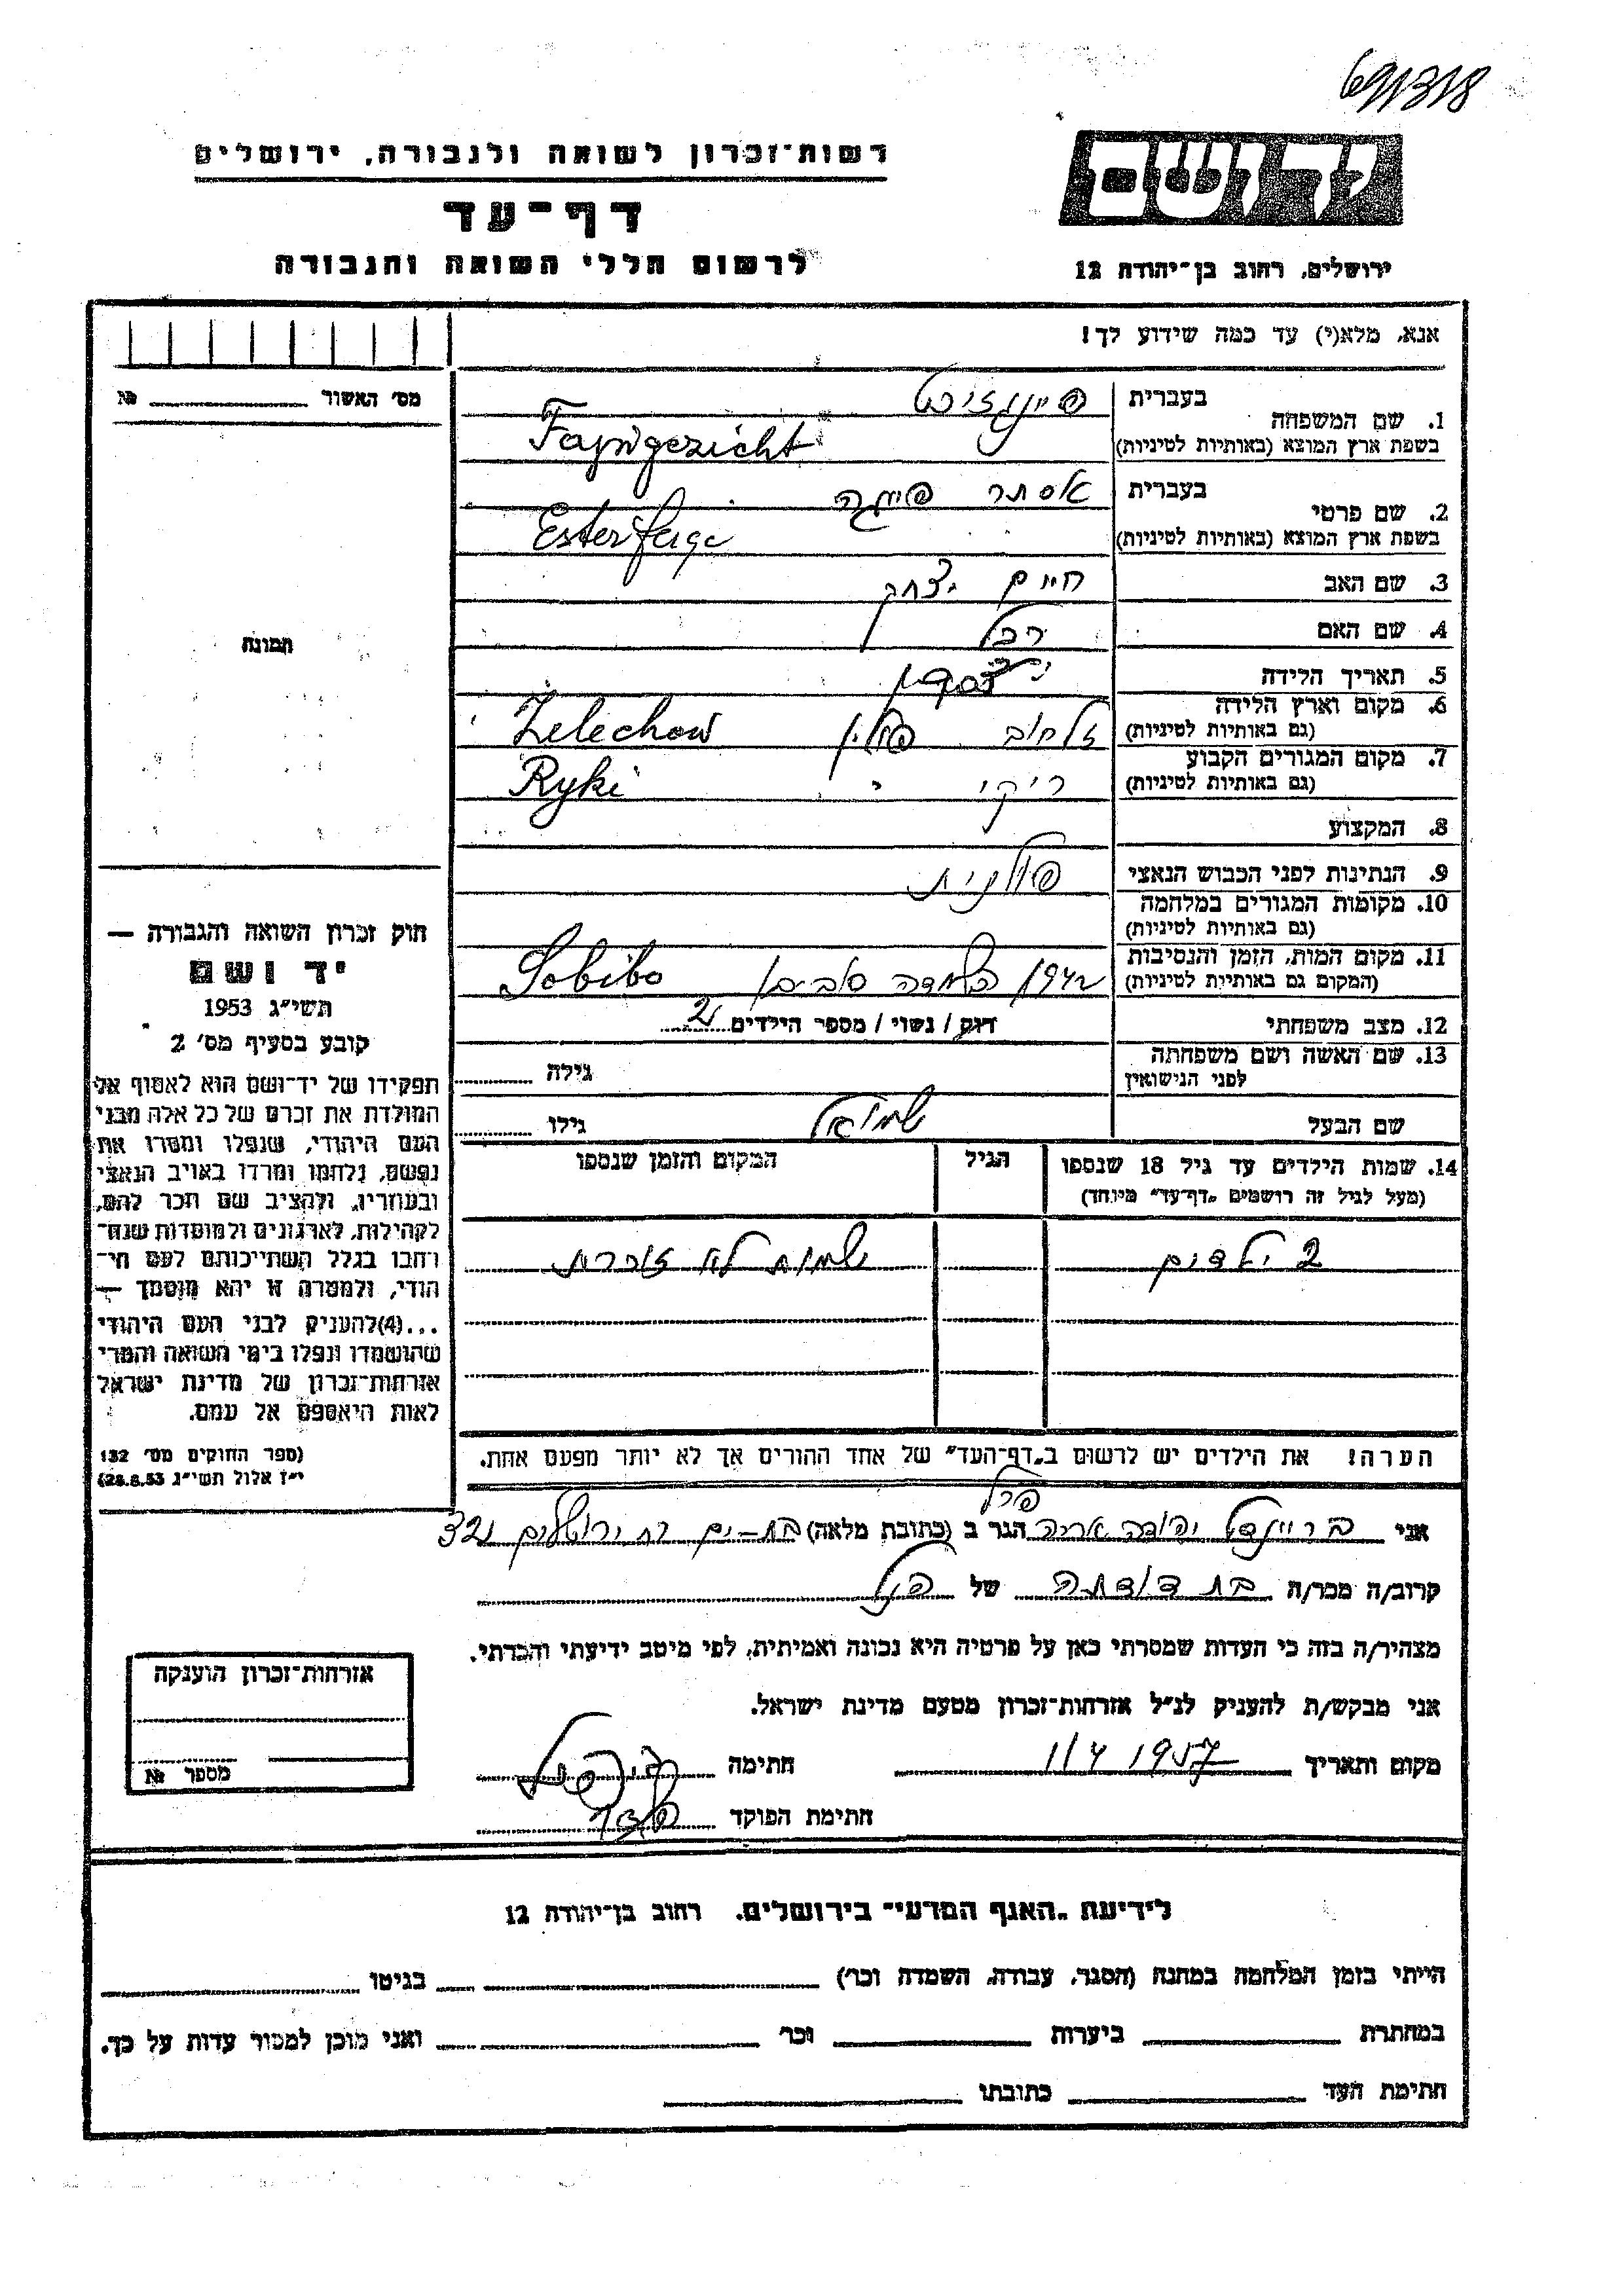 691318
יד ושם
רשות־זכרון לשואה ולגבורה, ירושלים
דף־עד
לרשום חללי השואה והגבורה
ירושלים, רחוב בן־יהודה 12
אנא, מלא(י) עד כמה שידוע לך!
מס׳ האשור № 
1. שם המשפחה
בעברית
פיינגזיכט
בשפת ארץ המוצא (באותיות לטיניות)
Fajngezicht
2. שם פרטי
בעברית
אסתר פייגה
בשפת ארץ המוצא (באותיות לטיניות)
Ester fajga
3. שם האב
חיים יצחק
4. שם האם
רחל
5. תאריך הלידה
6. מקום וארץ הלידה
(גם באותיות לטיניות)
זלחוב פולין Zelechow
7. מקום המגורים הקבוע
(גם באותיות לטיניות)
ריקי Ryki
8. המקצוע
9. הנתינות לפני הכבוש הנאצי
פולנית
10. מקומות המגורים במלחמה
(גם באותיות לטיניות)
11. מקום המות, הזמן והנסיבות
(המקום גם באותיות לטיניות)
1942 השמדה סוביבו Sobibo
12. מצב משפחתי
רווק / נשוי / מספר הילדים 2
13. שם האשה ושם משפחתה
לפני הנישואין
גילה
שם הבעל
שמואל
גילו
14. שמות הילדים עד גיל 18 שנספו
(מעל לגיל זה רושמים „דף־עד״ מיוחד)
הגיל
המקום והזמן שנספו
2 ילדים
שמות לא זוכרת
הערה! את הילדים יש לרשום ב„דף־העד״ של אחד ההורים אך לא יותר מפעם אחת.
תמונה
חוק זכרון השואה והגבורה —
יד ושם
תשי״ג 1953
קובע בסעיף מס׳ 2
תפקידו של יד־ושם הוא לאסוף אל
המולדת את זכרם של כל אלה מבני
העם היהודי, שנפלו ומסרו את
נפשם, נלחמו ומרדו באויב הנאצי
ובעוזריו, ולהציב שם וזכר להם,
לקהילות, לארגונים ולמוסדות שנח־
רבו בגלל השתייכותם לעם הי־
הודי, ולמטרה זו יהא מוסמך —
...(4)להעניק לבני העם היהודי
שהושמדו ונפלו בימי השואה והמרי
אזרחות־זכרון של מדינת ישראל
לאות היאספם אל עמם.
(ספר החוקים מס׳ 132
י״ז אלול תשי״ג 28.8.53)
פרל
אני ברוינדל יהודה אריה הגר ב (כתובת מלאה) בת־ים רח ירושלים 32
קרוב/ה מכר/ה בת דודתה של הנ״ל
מצהיר/ה בזה כי העדות שמסרתי כאן על פרטיה היא נכונה ואמיתית, לפי מיטב ידיעתי והכרתי.
אני מבקש/ת להעניק לנ״ל אזרחות־זכרון מטעם מדינת ישראל.
מקום ותאריך 1/4 1957 חתימה
חתימת הפוקד
אזרחות־זכרון הוענקה
מספר №
לידיעת „האגף המדעי״ בירושלים, רחוב בן־יהודה 12
הייתי בזמן המלחמה במחנה (הסגר, עבודה, השמדה וכו׳) בגיטו
במחתרת ביערות וכו׳ ואני מוכן למסור עדות על כך.
חתימת העד כתובתו